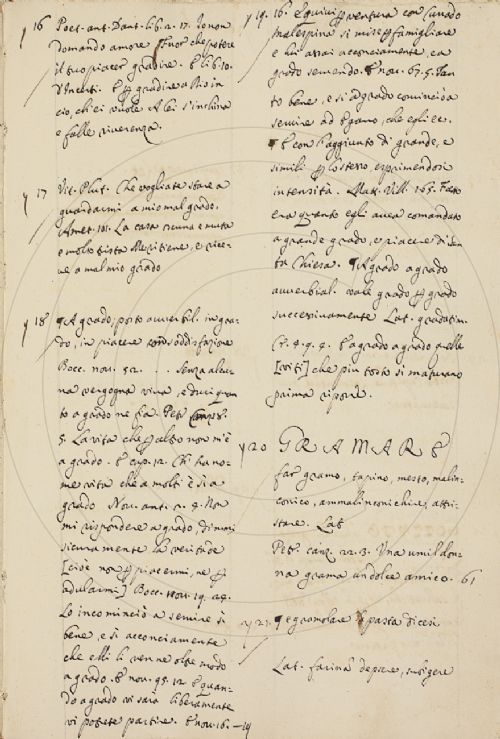 y 16 Poet. ant. Dant. lib. 2. 17. Io non
domando amore Fuor che potere
il tuo piacer gradire. E lib. 10.
E gradire
cio, ch'ei vuole A lei s'inchina
e falle riverenza.
y 17 Vit. Plut. Che vogliate stare a
guardarmi a mio mal grado.
Amet. 101. La casa scura e muta
e molto trista Me ritiene, e rice-
ve a mal mio grado
y 18 A grado, posto avverbil. in gra-
do, in piacere soddisfazione
Bocc. nov. 52. .... Senza alcu-
na vergogna viva, e
to a grado ne fia. Petr. canz. 8.
5. La vita che altro non m'è
a grado. E cap. 12. Chi ha no-
me vita che a molti è sì a
grado Nov. ant. 2. 8. Non
mi rispondere a grado, dimmi
sicuramente la verità
[cioè non piacermi, ne
adularmi] Bocc. nov. 19. 28.
Lo incominciò a servire sì
bene, e sì acconciamente
che elli li venne oltre modo
a grado. E nov. 95. 12 E quan-
do a grado vi sarà liberamente
vi potete partire. E nov. 16. — 19
y 19. 16. E quivi ventura con Currado
Malespina si mise famigliare
e lui assai acconciamente, ea
grado servendo. E nov. 67. 5. Tan
to bene, e si a grado cominciò a
servire ad Egano, che egli ec.
E con l'aggiunto di grande, e
simili lo stesso, esprimendosi
intensità. Mat. Vill. 165. Fatto
era quanto egli avea comandato
a grande grado, e piacere di San
ta Chiesa. A grado a grado
avverbial. vale grado grado
successivamente Lat. gradatim.
Cr. 4. 9. 4. E a grado a grado quelle
[viti] che più tosto si maturano
prima riporre.
y 20 GRAMARE
far gramo, tapino, mesto, malin-
conico, ammalinconichire, attri-
stare. Lat.
Petr. canz. 22. 3. Una umil don-
na grama un dolce amico. 61
y 21. gramolare la pasta dicesi
Lat. farinã depsere, subigere